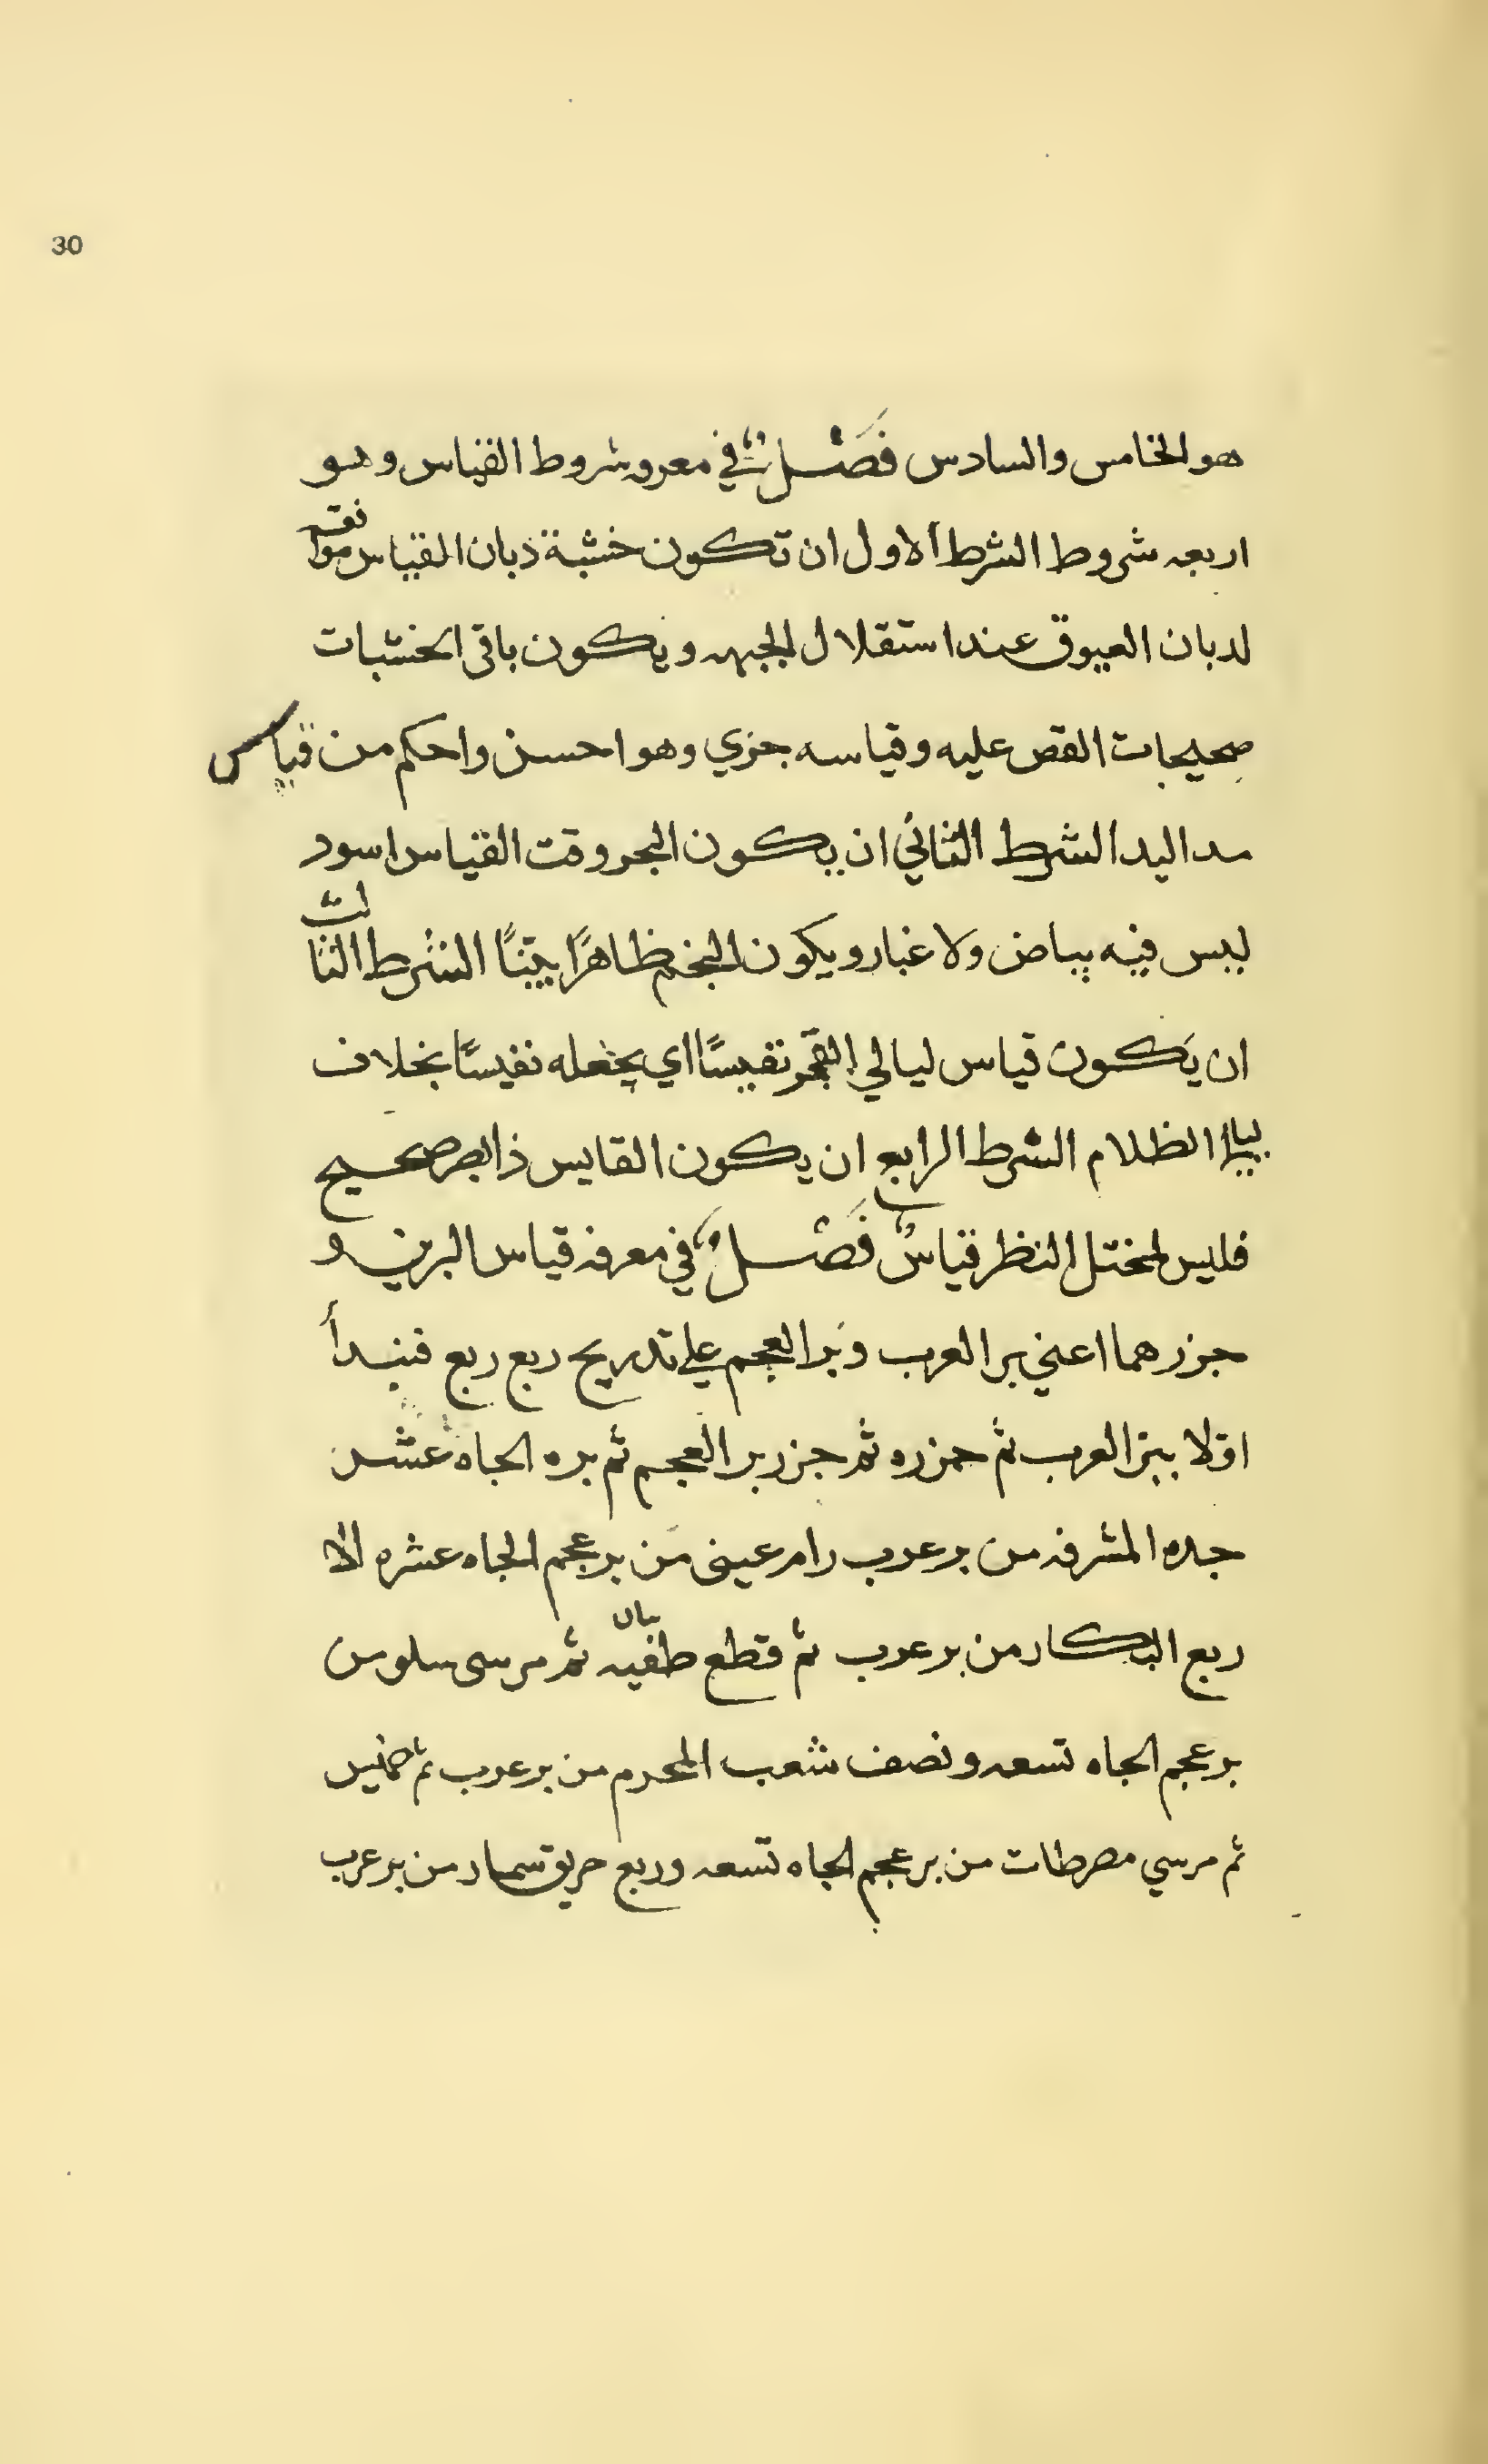 30
هو الخامس والسادس فَصْل في معرفه شروط القياس وهو
اربعه شروط الشرط الاول ان تكون خشبة ذبان القياس موافقه
لدبان العيوق عند استقلال الجبهه ويكون باقى الخشبات
صحيحات القص عليه وقياسه جزي وهو احسن واحكم من قياس
مد اليد الشرط الثاني ان يكون البحر وقت القياس اسود
ليس فيه بياض ولا غبار ويكون النجم ظاهرًا بيّنًا الشرط الثالث
ان يَكون قياس ليالي القمر نفيسًا اي يجعله نفيسًا بخلاف
ليالي الظلام الشرط الرابع ان يكون القايس ذا بصر صحيح
فليس لمختل النظر قياسٌ فَصْل في معرفه قياس البرين و
جزرهما اعني بر العرب وَبر العجم علي تدريج ربع ربع فنبدأ
اوّلا ببر العرب ثم جزره ثم جزر بر العجم ثم بره الجاه عشر
جده المشرفه من بر عرب راس عينى من بر عجم الجاه عشره الا
ربع البكار من بر عرب ثم قطع طفيه ثم مرسى سلوس
بر عجم الجاه تسعه ونصف شعب المحرم من بر عرب ثم
ثم مرسي مصرطات من بر عجم الجاه تسعه وربع حريق سمار من بر عرب